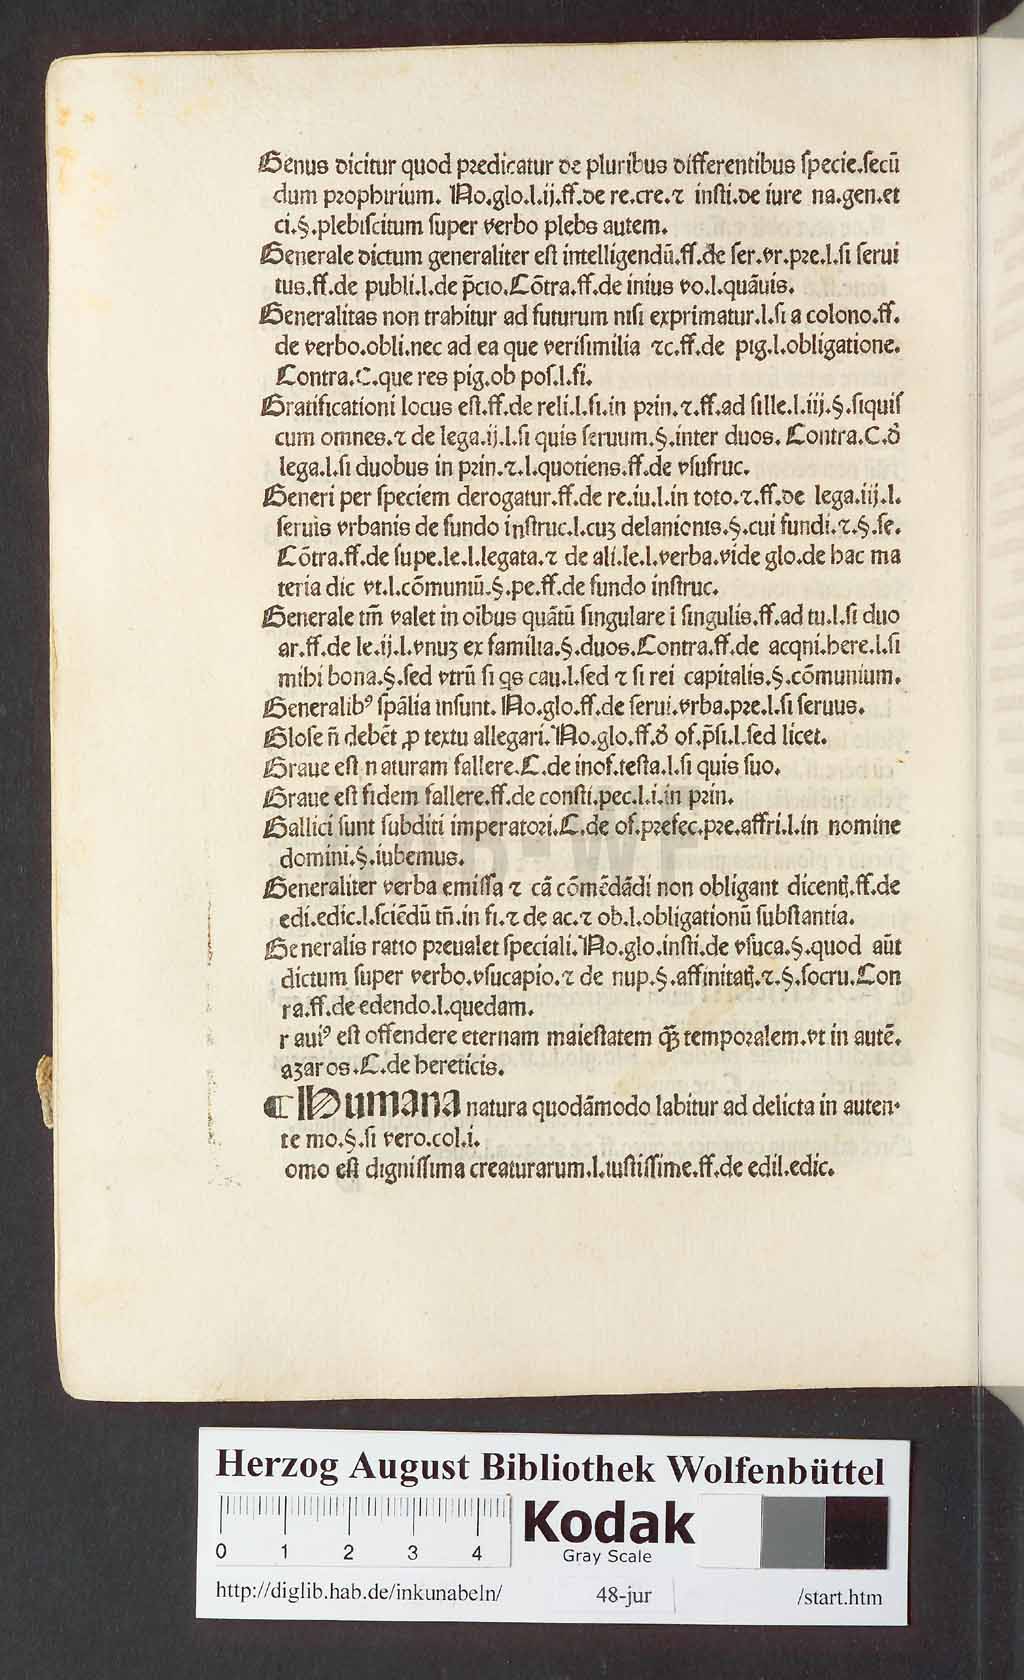 Genus dicitur quod predicatur de pluribus differentibus ſpecie.ſecū
dum prophirium. No.glo.l.ij.ff.de re.cre.⁊ inſti.de iure na.gen.et
ci.§.plebiſcitum ſuper verbo plebs autem.
Generale dictum generaliter eſt intelligendū.ff.de ſer.vr.pre.l.ſi ſerui
tus.ff.de publi.l.de p̄cio.Cōtra.ff.de inius vo.l.quāuis.
Generalitas non trahitur ad futurum niſi exprimatur.l.ſi a colono.ff.
de verbo.obli.nec ad ea que veriſimilia ⁊c.ff.de pig.l.obligatione.
Contra.C.que res pig.ob poſ.l.fi.
Gratificationi locus eſt.ff.de reli.l.ſi.in prin.⁊.ff.ad ſille.l.iij.§.ſiquiſ
cum omnes.⁊ de lega.ij.l.ſi quis ſeruum.§.inter duos. Contra.C.ď
lega.l.ſi duobus in prin.⁊.l.quotiens.ff.de vſufruc.
Generi per ſpeciem derogatur.ff.de re.iu.l.in toto.⁊.ff.de lega.iij.l.
ſeruis vrbanis de fundo inſtruc.l.cuꝫ delanionis.§.cui fundi.⁊.§.ſe.
Cōtra.ff.de ſupe.le.l.legata.⁊ de ali.le.l.verba.vide glo.de hac ma
teria dic vt.l.cōmuniū.§.pe.ff.de fundo inſtruc.
Generale tm̄ valet in oībus quātū ſingulare ī ſingulis.ff.ad tu.l.ſi duo
ar.ff.de le.ij.l.vnuꝫ ex familia.§.duos.Contra.ff.de acqni.here.l.ſi
mihi bona.§.ſed vtrū ſi qs cau.l.ſed ⁊ ſi rei capitalis.§.cōmunium.
Generalibꝰ ſpālia inſunt. No.glo.ff.de ſerui.vrba.pre.l.ſi ſeruus.
Gloſe n̄ debēt ꝓ textu allegari. No.glo.ff.ď of.p̄ſi.l.ſed licet.
Graue eſt n aturam fallere.C.de inof.teſta.l.ſi quis ſuo.
Graue eſt fidem fallere.ff.de conſti.pec.l.i.in prin.
Gallici ſunt ſubditi imperatori.C.de of.prefec.pre.affri.l.in nomine
domini.§.iubemus.
Generaliter verba emiſſa ⁊ cā cōmēdādi non obligant dicentꝭ.ff.de
edi.edic.l.ſciēdū tn̄.in fi.⁊ de ac.⁊ ob.l.obligationū ſubſtantia.
Ge neralis ratio preualet ſpeciali. No.glo.inſti.de vſuca.§.quod aūt
dictum ſuper verbo.vſucapio.⁊ de nup.§.affinitatꝭ.⁊.§.ſocru.Con
ra.ff.de edendo.l.quedam.
r auiꝰ eſt offendere eternam maieſtatem q̄ꝫ temporalem.vt in autē.
aꝫar os.C.de hereticis.
¶ Humana natura quodāmodo labitur ad delicta in auten-
te mo.§.ſi vero.col.i.
omo eſt digniſſima creaturarum.l.iuſtiſſime.ff.de edil.edic.
HAB-WF
Herzog August Bibliothek Wolfenbüttel
0 1 2 3 4
Kodak
Gray Scale
http://diglib.hab.de/inkunabeln/ 48-jur /start.htm